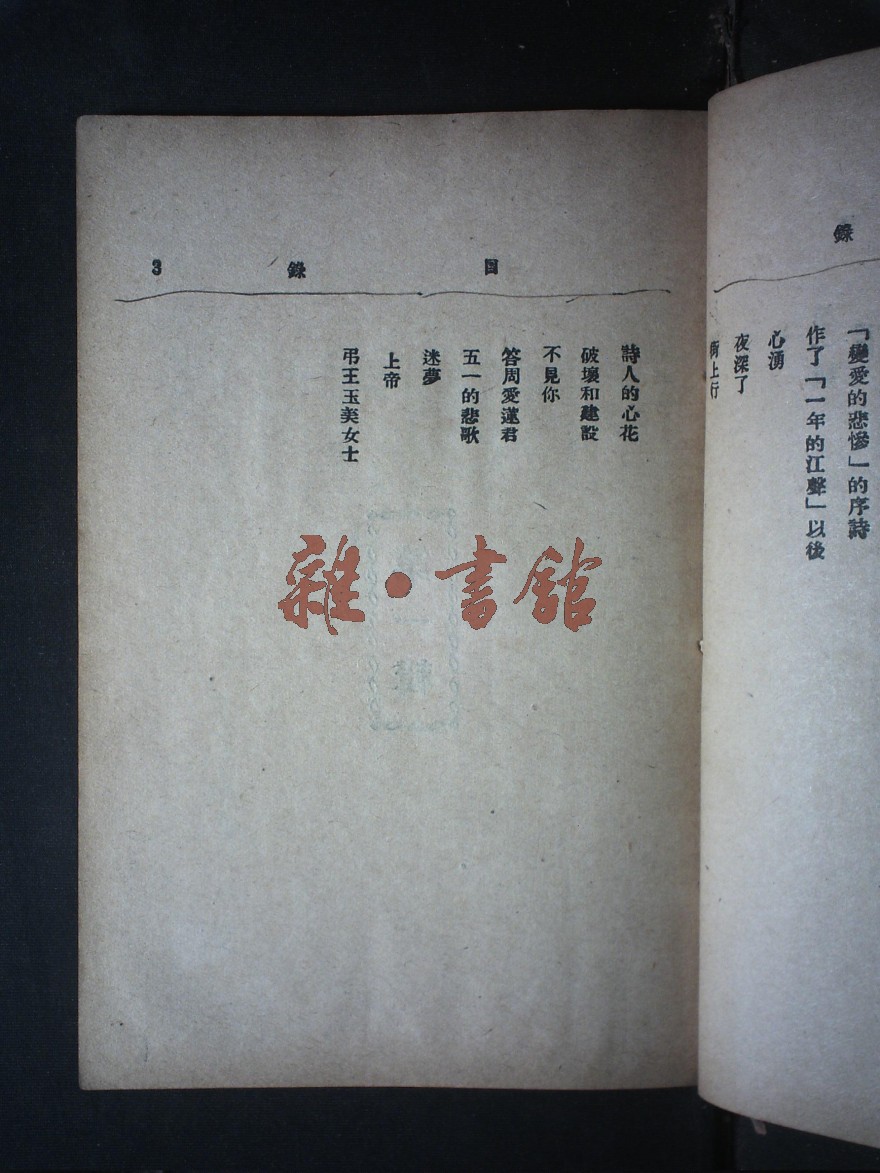 錄
「戀愛的悲慘」的序詩
作了「一年的江聲」以後
心湧
夜深了
街上行
目錄 3
詩人的心花
破壞和建設
不見你
答周愛蓮君
五一的悲歌
迷夢
上帝
弔王玉美女士
雜·書館